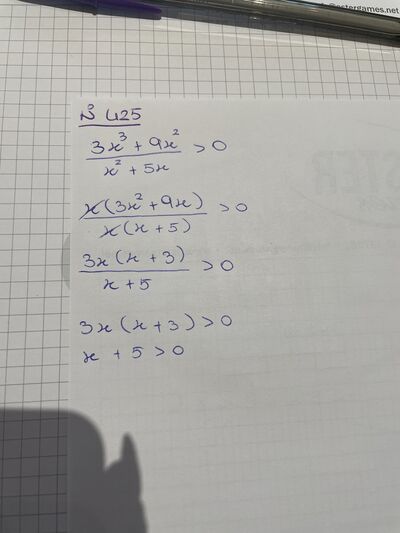 @estergames.net
№ 425
3x³ + 9x² / x² + 5x > 0
x(3x² + 9x) / x(x + 5) > 0
3x(x + 3) / x + 5 > 0
3x(x + 3) > 0
x + 5 > 0